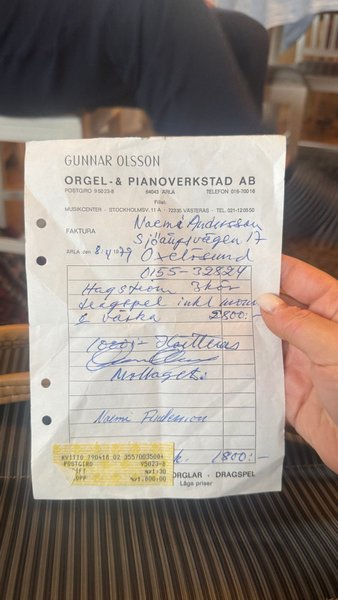 GUNNAR OLSSON
ORGEL- & PIANOVERKSTAD AB
POSTGIRO 95023-8 64043 ÄRLA TELEFON 016-700 18
Filial:
MUSIKCENTER - STOCKHOLMSV. 11 A - 72335 VÄSTERÅS - TEL. 021-12 05 50
FAKTURA
Naemi Andersson
Sjöängsvägen 17
ÄRLA den 8/4 1979 Oxelösund
0155-32824
Hagström 3kör
dragspel inkl moms
& väska 2800:-
1000:-
Mottaget:
Naemi Andersson
KVITTO 790418 02 35570035004
POSTGIRO 95023-8
1:30
UPP 1.800:00
k. 1800:-
ORGLAR - DRAGSPEL
Låga priser